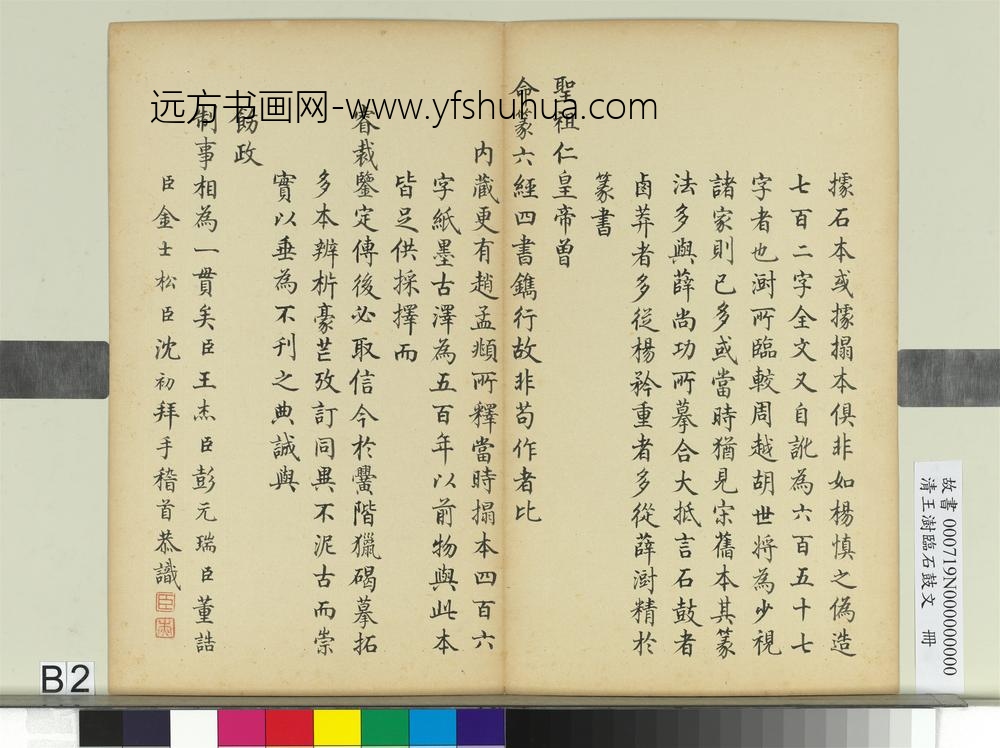 據石本或據搨本俱非如楊慎之偽造
七百二字全文又自訛為六百五十七
字者也澍所臨較周越胡世將為少視
諸家則已多或當時猶見宋舊本其篆
法多與薛尚功所摹合大抵言石鼓者
鹵莽者多從楊矜重者多從薛澍精於
篆書
聖祖仁皇帝曾
命篆六經四書鐫行故非苟作者比
內藏更有趙孟頫所釋當時搨本四百六
字紙墨古澤為五百年以前物與此本
皆足供採擇而
睿裁鑒定傳後必取信今於黌階獵碣摹拓
多本辨析豪芒攷訂同異不泥古而崇
實以垂為不刊之典誠與
飭政
制事相為一貫矣臣王杰臣彭元瑞臣董誥
臣金士松臣沈初拜手稽首恭識
远方书画网-www.yfshuhua.com
故書 000719N000000000
清王澍臨石鼓文 冊
B2